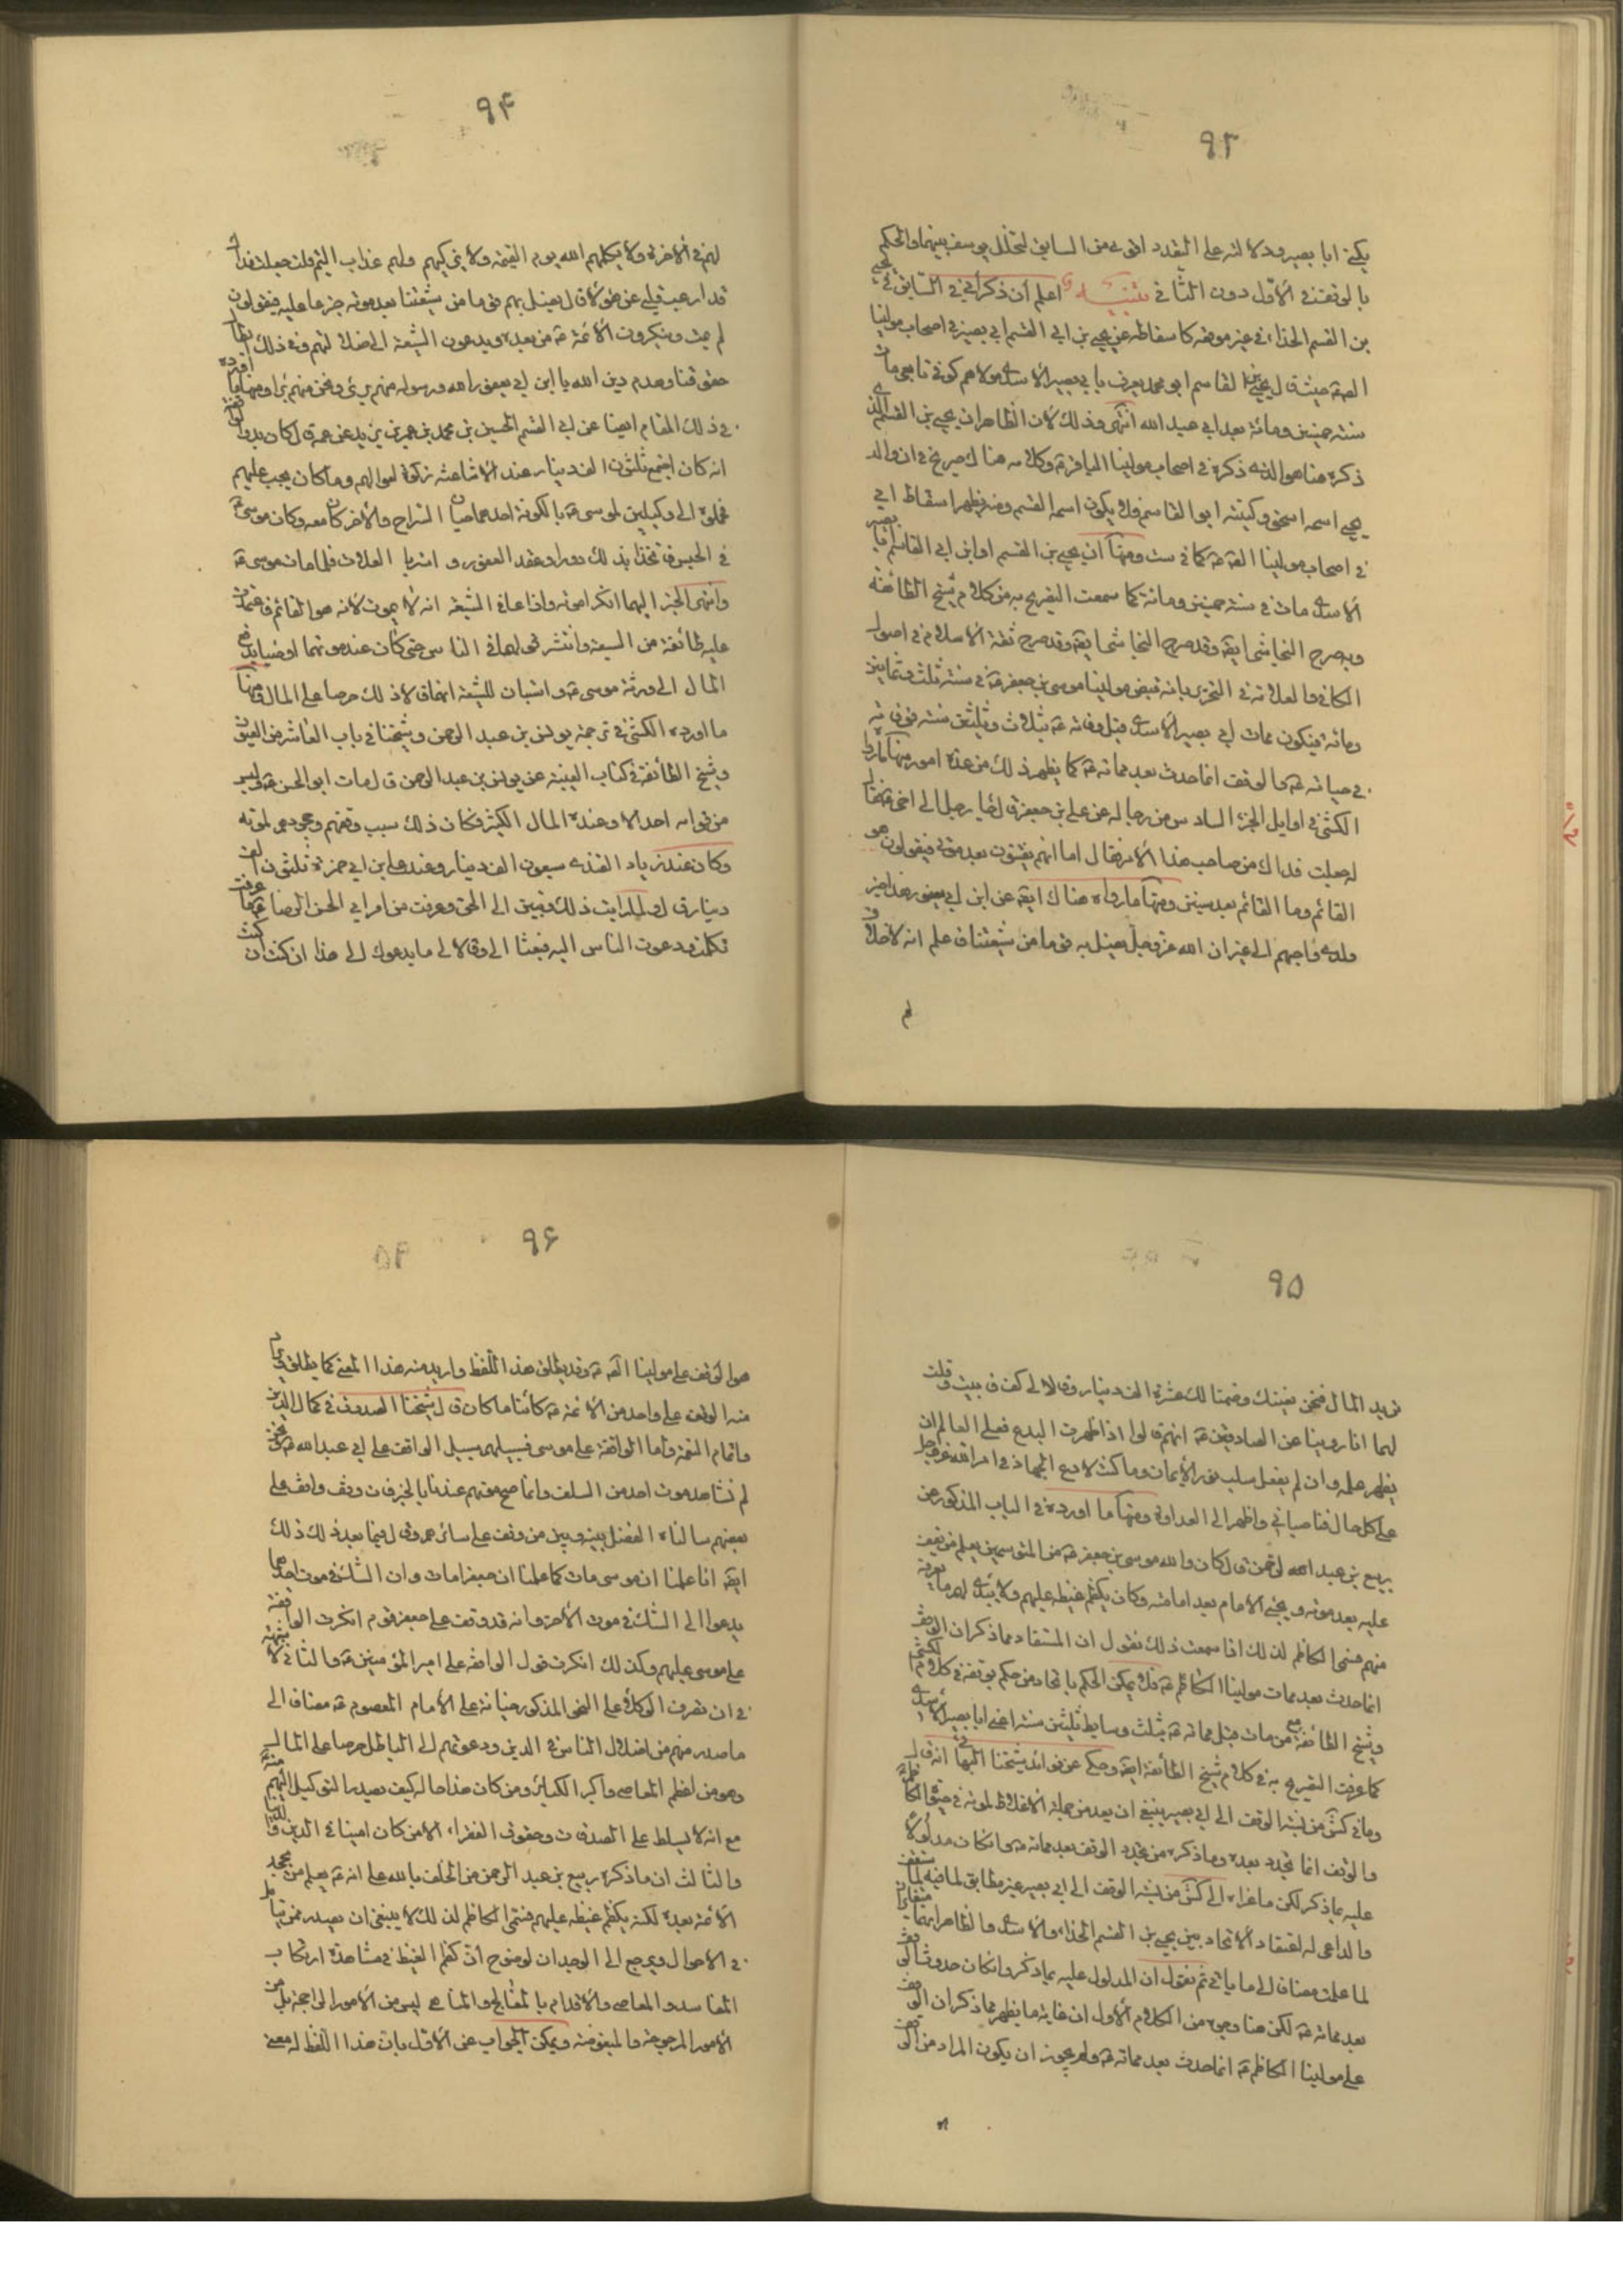 ٩٣
يكنى ابا بصير ودلالته على التعدد اقوى من السابق لتخلل يوسف بينهما والحكم
بالوقف في الأوّل دون الثاني تنبيه اعلم أن ذكر النجاشي في السابق في يحيى
بن القسم الحذاء في غير موقعه كاسقاطه عن يحيى بن ابي القسم ابي بصير في اصحاب مولينا
الصق حيث قال يحيى بن القاسم ابو محمد يعرف بابي بصير الأسدي مولاهم كوفي تابعي مات
سنة خمسين ومائة بعد ابي عبد الله انتهى وذلك لأن الظاهر ان يحيى بن القسم الذي
ذكره هنا هو الذي ذكره في اصحاب مولينا الباقر ع وكلامه هناك صريح في ان والد
يحيى اسمه اسحق وكنيته ابو القاسم فلا يكون اسمه القسم ومنه يظهر اسقاط ابي
في اصحاب مولينا الصق ع كما في ست ومنها أن يحيى بن القسم او ابن ابي القاسم ابا بصير
الأسدي مات في سنة خمسين ومائة كما سمعت التصريح به من كلام شيخ الطائفة
وبصرح النجاشي ايضا وقد صرح ثقة الأسلام في اصول
الكافي والعلامة في التحرير بانه قبض مولينا موسى بن جعفر ع في سنة ثلث وثمانين
ومائة فيكون ممات ابي بصير الأسدي قبل وفاته ع بثلاث وثلثين سنة فوفاته
في حياته ع والوقف انما حدث بعد مماته ع كما يظهر ذلك من عدة امور منها ما رواه
الكشي في اوايل الجزء السادس من رجاله عن علي بن جعفر قال جاء رجل الى اخي ع فقال
له جعلت فداك من صاحب هذا الأمر فقال اما انهم يفتنون بعد موتي فيقولون هو
القائم وما القائم الا بعد سنين ومنها ما رواه هناك ايضا عن ابن ابي يعفور
ولدي فاجههم الى غير ان الله عز وجل يضل به قوما من شيعتنا فاعلم انه لاخلاق
٩٤
لهم في الأخرة ولا يكلمهم الله يوم القيمة ولا يزكيهم ولهم عذاب اليم قلت جعلت فداك
قد ارعبت قلبي عن هؤلاء قال يضل بهم قوما من شيعتنا بعد موته جزعا عليه فيقولون
لم يمت وينكرون الأئمة ع من بعده ويدعون الشيعة الى ضلالتهم وفي ذلك ابطال
حقوقنا وهدم دين الله يا ابن ابي يعفور الله ورسوله منهم بريء ونحن منهم براء ومنها ما اورده
في ذلك المقام ايضا عن ابي القسم الحسين بن محمد بن عمر بن يزيد عن عمه قال كان بدو الواقفة
انه كان اجتمع ثلثون الف دينار عند الأشاعثة زكوة اموالهم وما كان يجب عليهم
فحملوه الى وكيلين لموسى ع بالكوفة احدهما حيان السراج والأخر كان معه وكان موسى ع
في الحبس فاتخذا بذلك دورا وعقدا العقود واشتريا الغلات فلما مات موسى ع
وانتهى الخبر اليهما انكرا موته واذاعا في الشيعة انه لا يموت لأنه هو القائم فاعتمدت
عليه طائفة من الشيعة وانتشر قولهما في الناس حتى كان عند موتهما اوصيا بدفع
المال الى ورثة موسى ع واستبان للشيعة انهما قالا ذلك حرصا على المال ومنها
ما اورده الكشي في ترجمة يونس بن عبد الرحمن وشيخنا في باب العاشر من العيون
وشيخ الطائفة في كتاب الغيبة عن يونس بن عبد الرحمن قال مات ابو الحسن ع وليس
من قوامه احد الا وعنده المال الكثير فكان ذلك سبب وقفهم وجحودهم لموته
وكان عند زياد القندي سبعون الف دينار وعند علي بن ابي حمزة ثلثون الف
دينار قال ولما رايت ذلك وتبين الى الحق وعرفت من امر ابي الحسن الرضا ع ما عرفت
تكلمت ودعوت الناس اليه فبعثا الي وقالا لي ما يدعوك الى هذا ان كنت
٩٥
تريد المال فنحن نغنيك وضمنا لك عشرة الف دينار وقالا لي كف فابيت وقلت
لهما انا روينا عن الصادقين ع انهم قالوا اذا ظهرت البدع فعلى العالم ان
يظهر علمه وان لم يفعل سلب نور الأيمان وما كنت لادع الجهاد في امر الله عز وجل
على كل حال فناصباني واظهرا لي العداوة ومنها ما اورده في الباب المذكور عن
ربيع بن عبد الله الرحمن قال كان والله موسى بن جعفر ع من المتوسمين يعلم من يقف
عليه بعد موته ويجحد الامام بعد امامته وكان يكظم غيظه عليهم ولا يبدي لهم ما يعرفه
منهم فسمي الكاظم لذلك اذا سمعت ذلك نقول ان المستفاد مما ذكر ان الوقف
انما حدث بعد ممات مولينا الكاظم ع فلا يمكن الحكم باتحاد من حكم بوقفه في كلام الكشي
وشيخ الطائفة مع من مات قبل مماته ع بثلث وثلثين سنة اعني ابا بصير الأسدي
كما عرفت التصريح به في كلام شيخ الطائفة ايضا وحكي عن فوائد شيخنا البهائي انه قال
وما في كش من نسبة الوقف الى ابي بصير ينبغي ان يعد من جملة الأغلاط لموته في حيوة الكاظم ع
والوقف انما تجدد بعده وما ذكره من تجدد الوقف بعد مماته ع وان كان مدلولا
عليه بما ذكر لكن ما عزاه الى كش من نسبة الوقف الى ابي بصير غير مطابق لما فيه
والداعي له اعتقاد الأتحاد بين يحيى بن القسم الحذاء والأسدي والظاهر انهما متغايران
لما علمت مضافا الى ما ياتي ثم نقول ان المدلول عليه بما ذكر وان كان حدوث الوقف
بعد مماته ع لكن هنا وجوه من الكلام الأول ان غاية ما يظهر مما ذكر ان الوقف
على مولينا الكاظم ع انما حدث بعد مماته ع ولم يجوز ان يكون المراد من الوقف
٩٦
هو الوقف على مولينا الصق ع وقد يطلق هذا اللفظ واريد منه هذا المعنى كما يطلق ويراد
منه الوقف على واحد من الأئمة ع كائنا ما كان قال شيخنا الصدوق في كمال الدين
واتمام النعمة واما الواقفة على موسى فسبيلهم سبيل الواقف على ابي عبد الله ع ونحن
لم نشاهد موت احد من السلف وانما صح موتهم عندنا بالخبر فان وقف واقف على
بعضهم سالناه الفصل بينه وبين من وقف على سائرهم وقال فيما بعد ذلك ذلك
ايضا انا علمنا ان موسى مات كما علمنا ان جعفرا مات وان الشك في موت احدهما
يدعوا الى الشك في موت الأخر وانه قد وقف على جعفر قوم انكرت الواقفة
على موسى عليهم وكذلك انكرت قول الواقفة على امير المؤمنين ع والثاني لا شبهة
في ان تصرف الوكلاء على النحو المذكور خيانة على الأمام المعصوم ع مضافا الى
ما صدر منهم من اضلال الناس في الدين ودعوتهم الى الباطل حرصا على المال
وهو من اعظم المعاصي واكبر الكبائر ومن كان هذا حاله كيف يصدر التوكيل اليهم منه ع
مع انه لا يسلط على الصدقات وحقوق الفقراء الا من كان امينا في الدين
والثالث ان ما ذكره ربيع بن عبد الرحمن من الحلف بالله على انه ع يعلم من يجحد
الأئمة بعده لكنه يكظم غيظه عليهم فسمي الكاظم لذلك لا ينبغي ان يصدر
في الأحوال ويرجع الى الوجدان لوضوح ان كظم الغيظ في مشاهدة ارتكاب
المفاسد والمعاصي والأقدام بالقبايح والمناهي ليس من الأمور الراجحة بل من
الأمور المرجوحة والمبغوضة ويمكن الجواب عن الأول بان هذا اللفظ له معنى